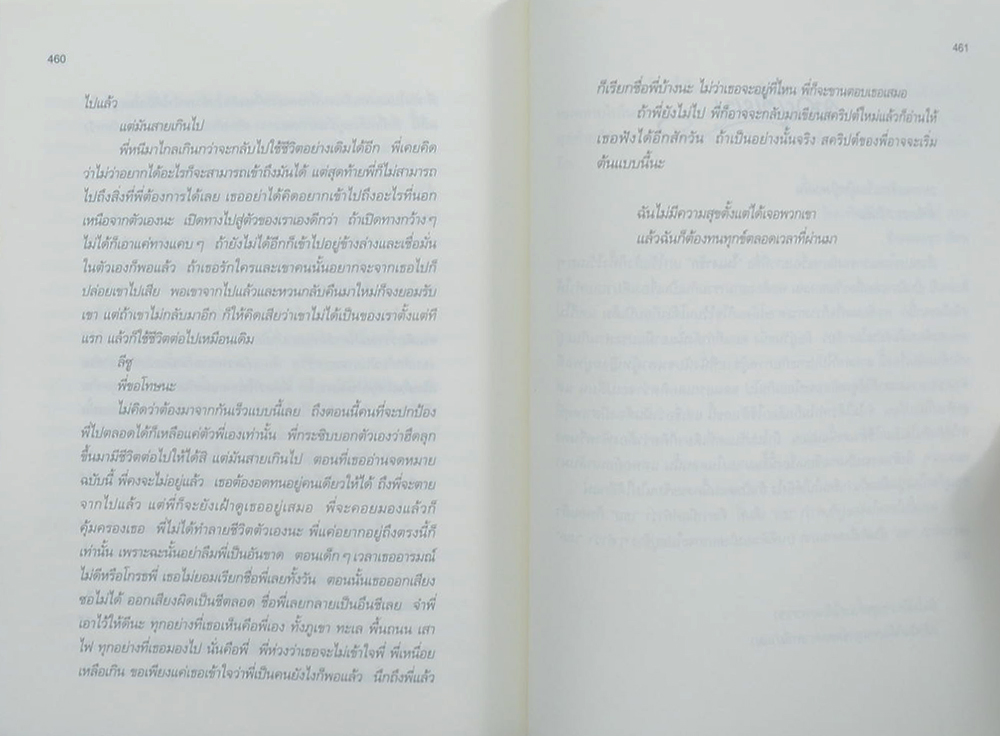 460
ไปแล้ว
แต่มันสายเกินไป
พี่หนีมาไกลเกินกว่าจะกลับไปใช้ชีวิตอย่างเดิมได้อีก พี่เคยคิด
ว่าไม่ว่าอยากได้อะไรก็จะสามารถเข้าถึงมันได้ แต่สุดท้ายพี่ก็ไม่สามารถ
ไปถึงสิ่งที่พี่ต้องการได้เลย เธออย่าได้คิดอยากเข้าไปถึงอะไรที่นอก
เหนือจากตัวเองนะ เปิดทางไปสู่ตัวของเราเองดีกว่า ถ้าเปิดทางกว้างๆ
ไม่ได้ก็เอาแค่ทางแคบๆ ถ้ายังไม่ได้อีกก็เข้าไปอยู่ข้างล่างและเชื่อมั่น
ในตัวเองก็พอแล้ว ถ้าเธอรักใครและเขาคนนั้นอยากจะจากเธอไปก็
ปล่อยเขาไปเสีย พอเขาจากไปแล้วและหวนกลับคืนมาใหม่ก็จงยอมรับ
เขา แต่ถ้าเขาไม่กลับมาอีก ก็ให้คิดเสียว่าเขาไม่ได้เป็นของเราตั้งแต่ที
แรก แล้วก็ใช้ชีวิตต่อไปเหมือนเดิม
ลีซู
พี่ขอโทษนะ
ไม่คิดว่าต้องมาจากกันเร็วแบบนี้เลย ถึงตอนนี้คนที่จะปกป้อง
พี่ไปตลอดได้ก็เหลือแค่ตัวพี่เองเท่านั้น พี่กระซิบบอกตัวเองว่าฮึดลุก
ขึ้นมามีชีวิตต่อไปให้ได้สิ แต่มันสายเกินไป ตอนที่เธออ่านจดหมาย
ฉบับนี้ พี่คงจะไม่อยู่แล้ว เธอต้องอดทนอยู่คนเดียวให้ได้ ถึงพี่จะตาย
จากไปแล้ว แต่พี่ก็จะยังเฝ้าดูเธออยู่เสมอ พี่จะคอยมองแล้วก็
คุ้มครองเธอ พี่ไม่ได้ทำลายชีวิตตัวเองนะ พี่แค่อยากอยู่ถึงตรงนี้ก็
เท่านั้น เพราะฉะนั้นอย่าลืมพี่เป็นอันขาด ตอนเด็กๆ เวลาเธออารมณ์
ไม่ดีหรือโกรธพี่ เธอไม่ยอมเรียกชื่อพี่เลยทั้งวัน ตอนนั้นเธอออกเสียง
ซอไม่ได้ ออกเสียงผิดเป็นชีตลอด ชื่อพี่เลยกลายเป็นอึนชีเลย จำพี่
เอาไว้ให้ดีนะ ทุกอย่างที่เธอเห็นคือพี่เอง ทั้งภูเขา ทะเล พื้นถนน เสา
ไฟ ทุกอย่างที่เธอมองไป นั่นคือพี่ พี่ห่วงว่าเธอจะไม่เข้าใจพี่ พี่เหนื่อย
เหลือเกิน ขอเพียงแค่เธอเข้าใจว่าพี่เป็นคนยังไงก็พอแล้ว นึกถึงพี่แล้ว
461
ก็เรียกชื่อพี่บ้างนะ ไม่ว่าเธอจะอยู่ที่ไหน พี่ก็จะขานตอบเธอเสมอ
ถ้าพี่ยังไม่ไป พี่ก็อาจจะกลับมาเขียนสคริปต์ใหม่แล้วก็อ่านให้
เธอฟังได้อีกสักวัน ถ้าเป็นอย่างนั้นจริง สคริปต์ของพี่อาจจะเริ่ม
ต้นแบบนี้นะ
ฉันไม่มีความสุขตั้งแต่ได้เจอพวกเขา
แล้วฉันก็ต้องทนทุกข์ตลอดเวลาที่ผ่านมา